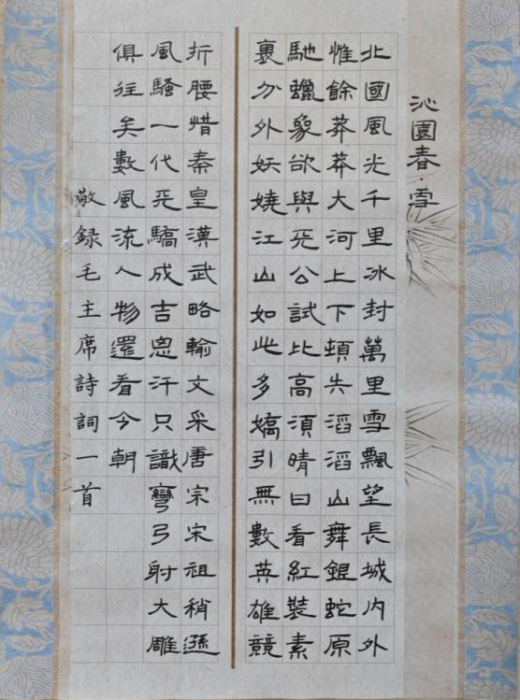 沁園春·雪
北國風光千里冰封萬里雪飄望長城内外
惟餘莽莽大河上下頓失滔滔山舞銀蛇原
馳蠟象欲與天公試比高須晴日看紅裝素
裹分外妖嬈江山如此多嬌引無數英雄競
折腰惜秦皇漢武略輸文采唐宗宋祖稍遜
風騷一代天驕成吉思汗只識彎弓射大雕
俱往矣數風流人物還看今朝
敬録毛主席詩詞一首